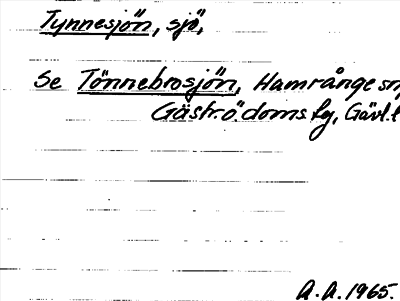 Tynnesjön, sjö,
Se Tönnebrosjön, Hamrånge sn
Gästr. ö doms. fg, Gävl. l
A. A. 1965.